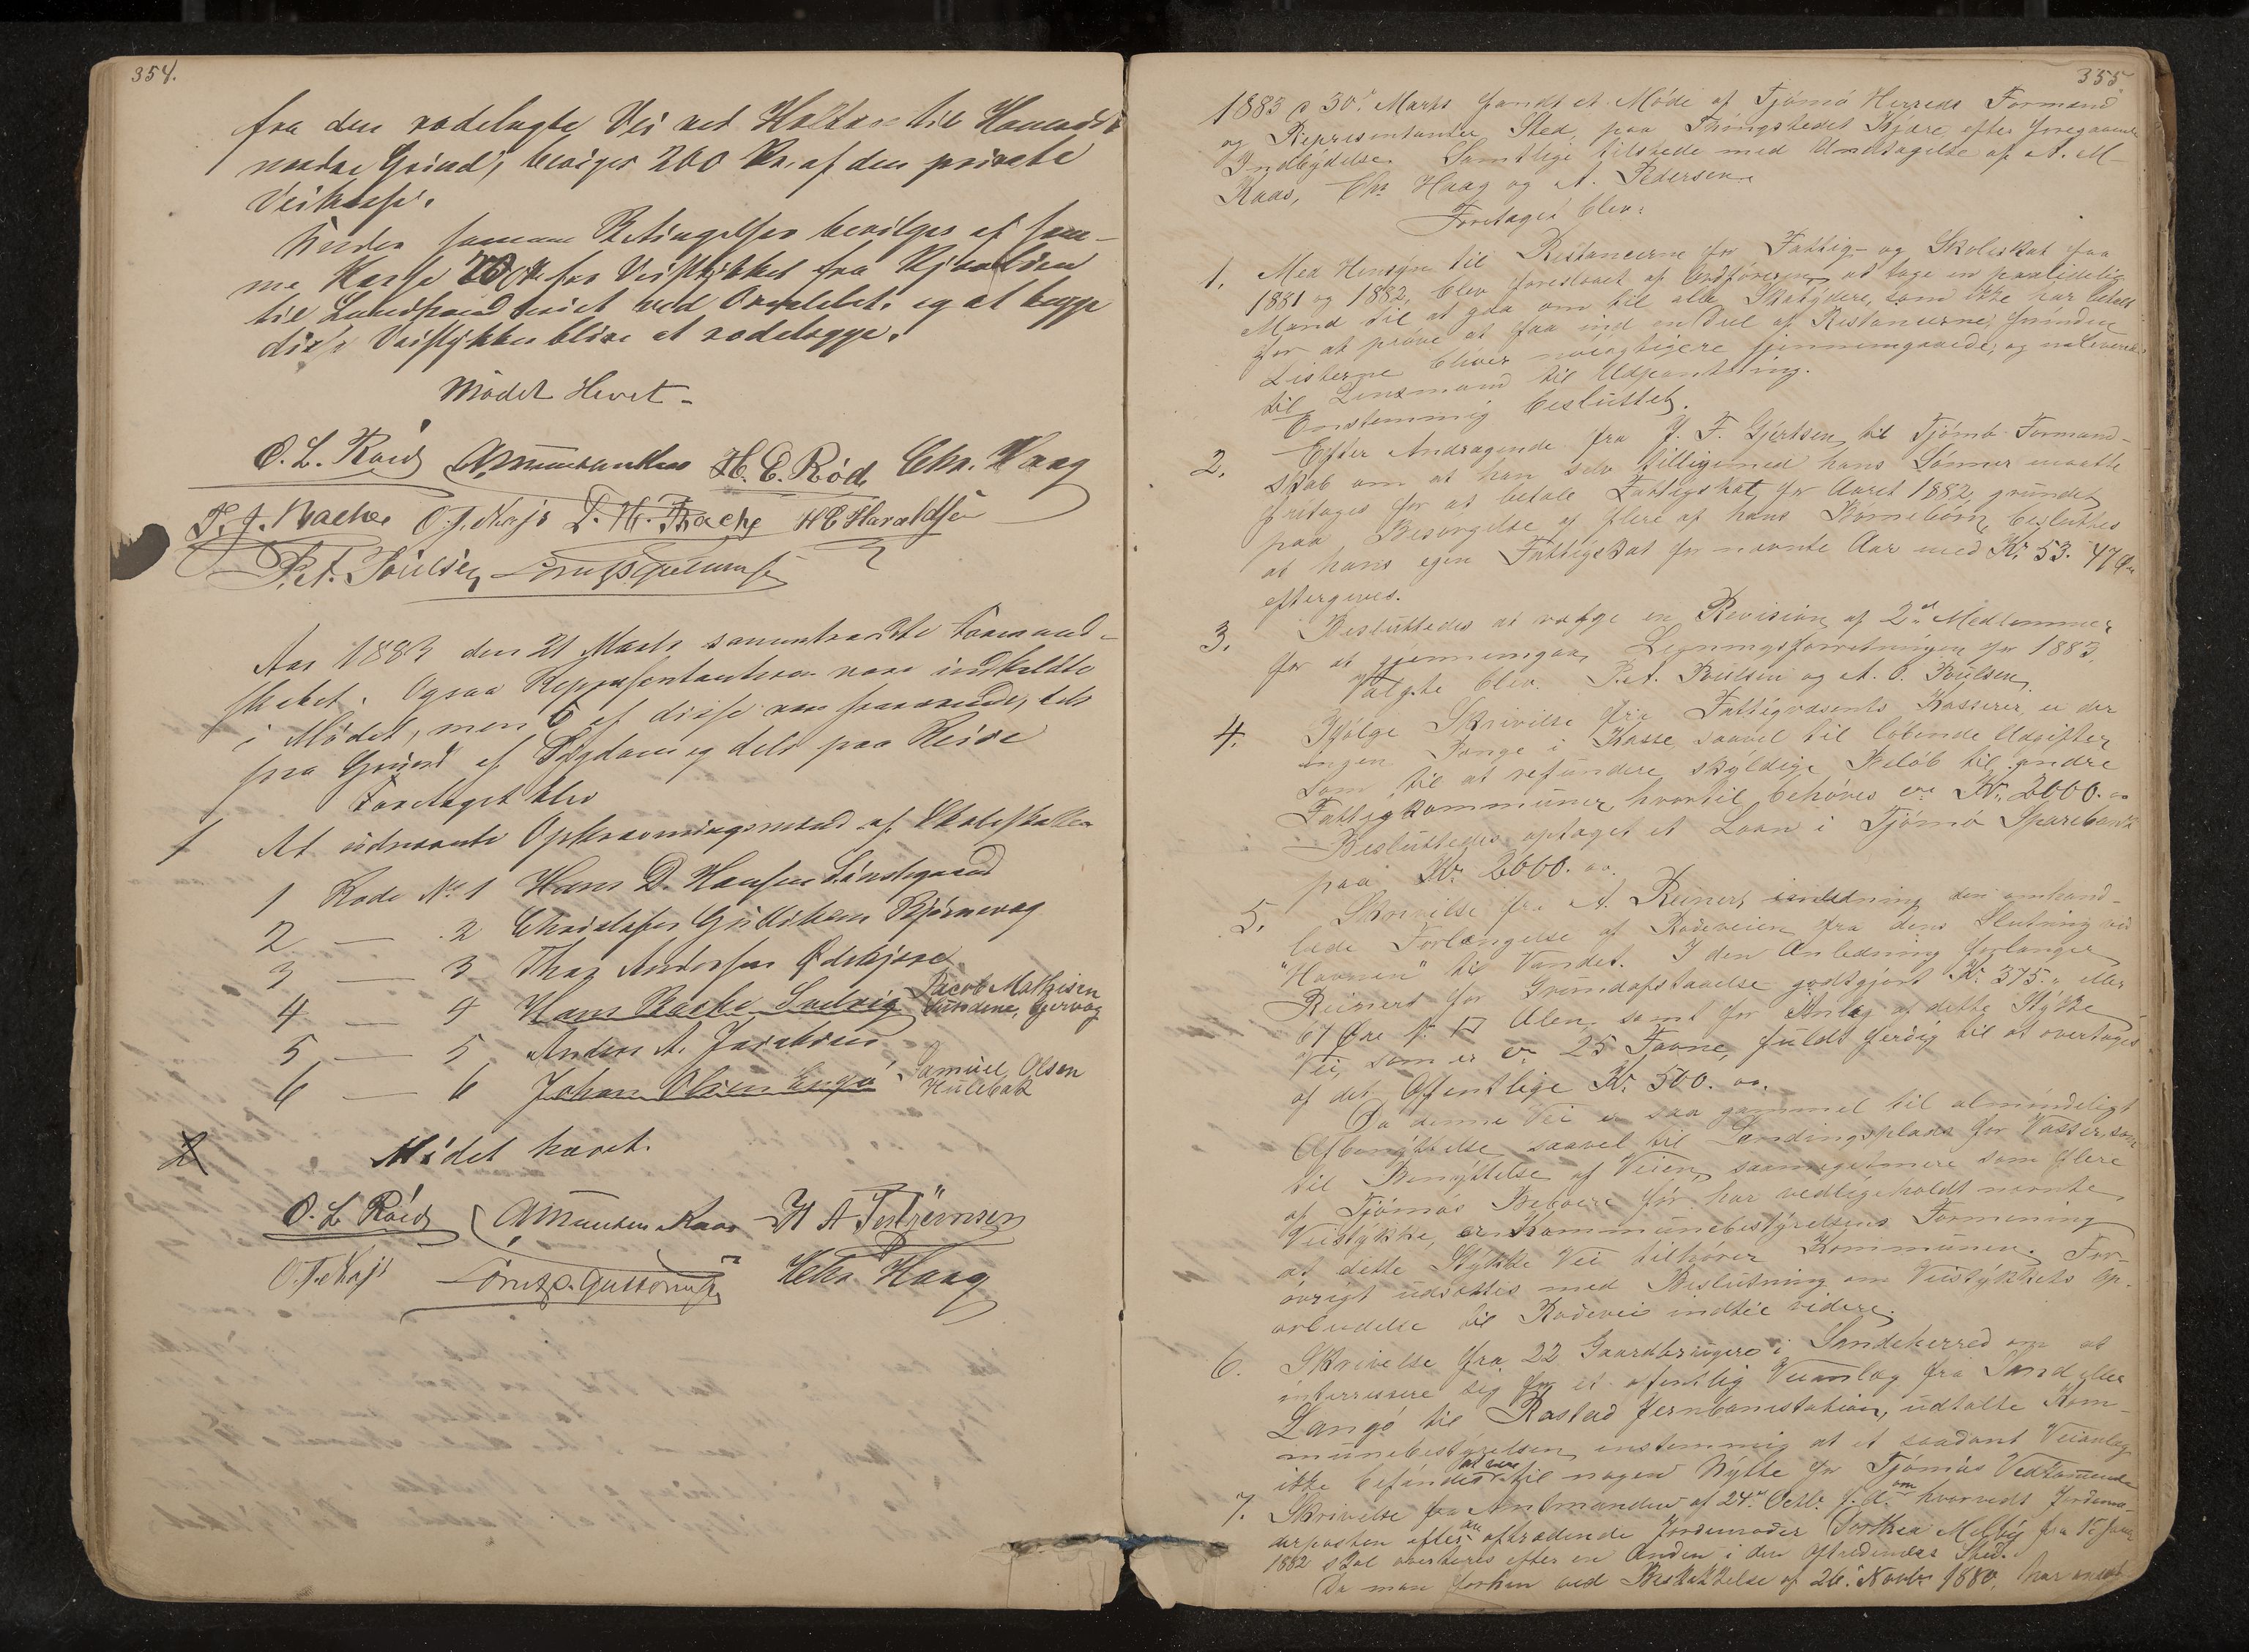 354.
fra den rodelagte Vei ved Holtan til Honerød
nordre Grind, bevilges 200 Kr. af den private
Veikasse.
Under samme Betingelser bevilges af sam-
me Kasse for Veistykket fra
til ved og at begge
disse Veistykker blive at rodelægge.
Mødet Hevet -
O. L. Röed A Mumtandsen H. E. Röd Chr. Haag
T. J. Bache O. T. Næss L. M. Bache H E Haraldsen
P. A. Poulsen
Aar 1883 den 21 Marts sammentraadte Formand-
skabet. Ogsaa Repræsentanterne vare indkaldte
i Mödet, men 6 af disse vare fraværende, dels
paa Grund af Sygdom og dels paa Reise
Foretaget blev
1 At udnævnte Opkrævningsmænd af Skoleskatten
1 Rode No 1 Hans D. Hansen
2 — 2 Christofer Gulliksen Bjørnevaag
3 — 3 Thor Andersen Ødekjære
4 — 4 Hans Bache Solvig Jacob Mathisen
Sundene, Gjervaag
5 — 5 Anders A. Jacobsen
6 — 6 Johan Olsen Engö Samuel Olsen
Hulebak
2 Mödet hævet.
O. L. Röed H A Testjörnsen
O. T. Næss Chr. Haag
355
1883 d 30te Marts fandt et Möde af Tjömö Herreds Formænd
og Repræsentanter Sted, paa Thingstedet Kjære, efter foregaaende
Indbydelse. Samtlige tilstede med Undtagelse af A. M-
Kaas, Chr Haag og A. Pedersen.
Foretaget blev:
1. Med Hensyn til Restancerne for Fattig- og Skoleskat for
1881 og 1882, blev foreslaaet af Ordföreren at tage en paalidelig
Mand til at gaa om til alle Skatydere, som ikke har betalt
for at pröve at faa ind en Del af Restancerne, forinden
Listerne bliver nöiagtigere gjennemgaaede, og
til Lensmand til Udpantning.
Enstemmig besluttet.
2. Efter Andragende fra J. F. Gjertsen til Tjömö Formand-
skab om at han selv tilligemed hans Sönner maatte
fritages for at betale Fattigskat for Aaret 1882, grundet
paa Besörgelse af flere af hans Börnebörn, besluttes
at hans egen Fattigskat for nævnte Aar med Kr. 53. 47 Öre
eftergives.
3. Besluttedes at vælge en Revision af 2de Medlemmer
for at gjennemgaa Ligningsforretningen for 1883.
Valgte blev P. A. Poulsen og A. O. Poulsen.
4. Ifölge Skrivelse fra Fattigvæsents Kasserer er der
ingen Penge i Kasse, saavel til löbende Udgifter
som til at refundere skyldige Belöb til andre
Fattigkommuner, hvortil behöves ca Kr. 2000. "
Besluttedes optaget et Laan i Tjömö Sparebank
paa Kr. 2000. oo.
5. Skrivelse fra A. Reinert den omhand-
lede Forlængelse af Rodeveien fra dens Slutning ved
"Havnen" til Vandet. I den Anledning forlanger
Reinert for Grundafstaaelse godtgjort Kr. 375. " eller
67 Öre pr □ Alen, samt for Anlæg af dette Stykke
Vei, som er ca 25 Favne, fuldt færdig til at overtages
af det Offentlige Kr. 500. oo.
Da denne Vei er saa gammel til almindeligt
Afbenyttelse saavel til Landingsplads for Vasser, som
til Benyttelse af Veien, saameget mere som flere
af Tjömös Beboere för har vedligeholdt nævnte
Veistykke, er Kommunebestyrelsens Formening
at dette Stykke Vei tilhører Kommunen. For-
övrigt udsættes med Beslutning om Veistykkets Op-
arbeidelse til Rodevei indtil videre.
6. Skrivelse fra 22 Gaardbrugere i Sandeherred om at
interressere sig for et offentlig Veianlæg fra Sand eller
Langö til Rastad Jernbanestation, udtalte Kom-
munebestyrelsen enstemmig at et saadant Veianlæg
ikke befandtes at være til nogen Nytte for Tjömös Vedkommende
7. Skrivelse fra Amtmanden af 24de Octbr. f. A. om hvorvidt Jordemo-
derposten efter den aftrædende Jordemoder Dorthea Melby fra 1ste Januar
1882 skal averteres efter en Anden i den Aftrædendes Sted.
Da man forhen ved Beskikkelse af 26. Novbr 1880, har ansat